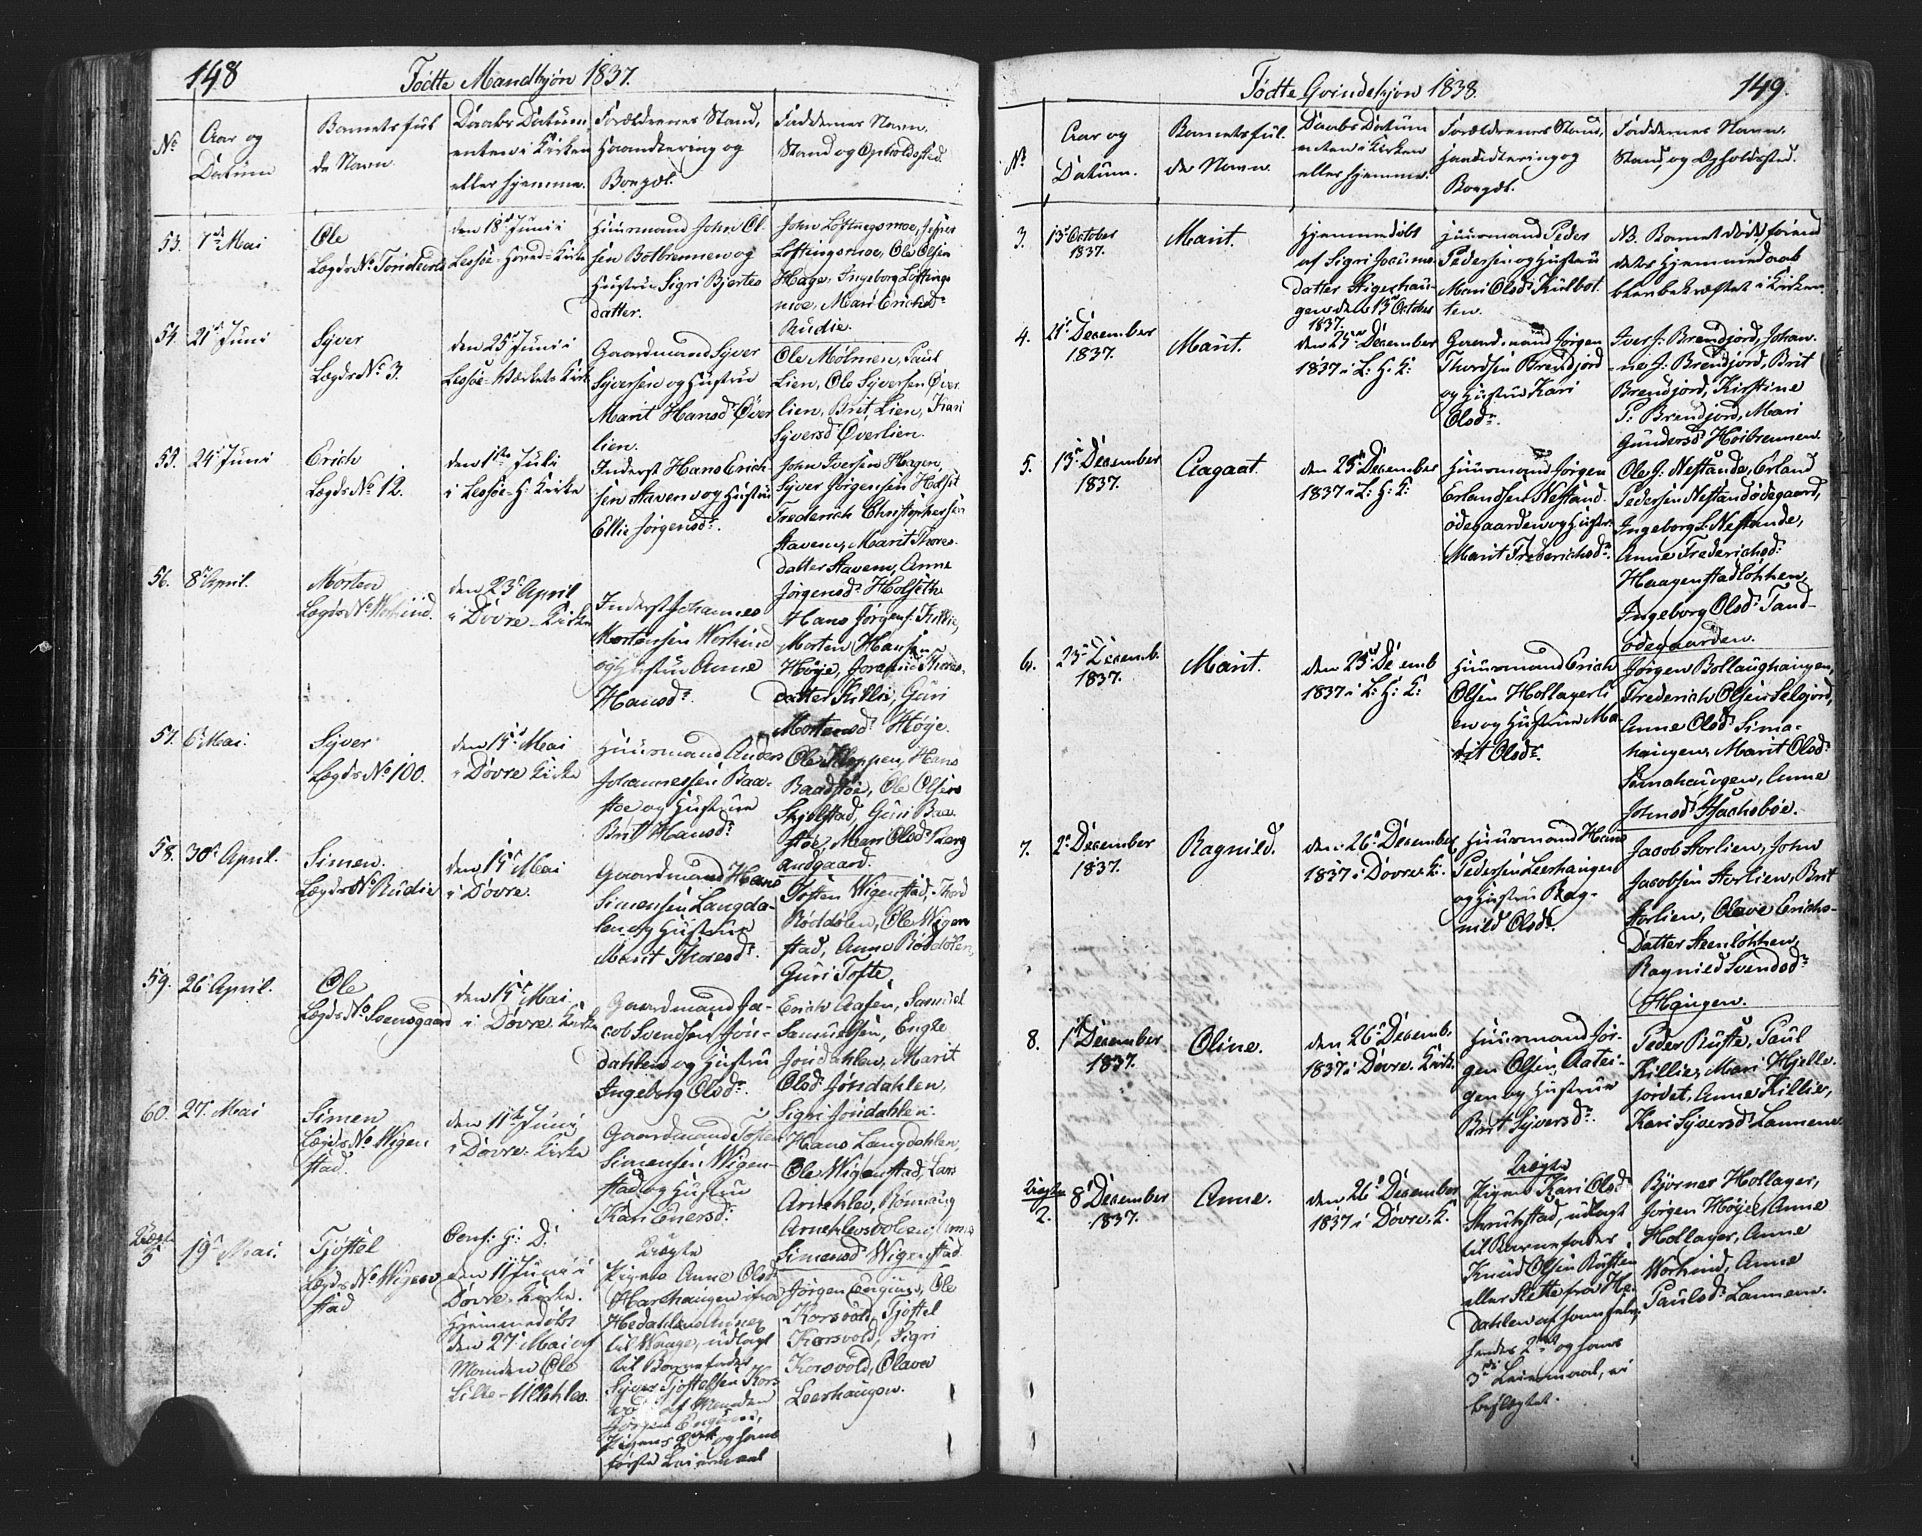 148
Födte Mandkjön 1837.
No
Aar og
Datum
Barnets ful
de Navn
Daabs Datum
enten i Kirken
eller hjemme.
Forældrenes Stand,
Haandtering og
Boepæl.
Faddernes Navn,
Stand og Opholdssted.
53.
7de Mai
Ole
Lægds No
den 18de Juni i
Lessöe-Hoved-Kirke
Huusmand John Ol
sen Botbrennen og
Hustru Sigri Bjertes
datter.
John Löftingsmoe,
Löftingsmoe, Ole Olsen
Hage, Ingeborg Löftings
moe, Mari Erichsdr
Rudie.
54.
21de Juni
Syver
Lægds No 3.
den 25de Juni i
Lessöe-Værkets Kirke
Gaardmand Syver
Syversen og Hustru
Marit Hansdr Över
lien.
Ole Mölmen, Paul
Lien, Ole Syversen Över
lien, Brit Lien, Kari
Syversdr Överlien.
55.
24de Juni
Erich
Lægds No 12.
den 1ste Juli
i Lessöe-H: Kirke
Inderst Hans Erich
sen Stavem og Hustru
Ellie Jörgensdr.
John Iversen Hagen,
Syver Jörgensen Holset
Frederich Christophersen
Stavem, Marit Thores
datter Stavem, Anne
Jörgensdr Holseth
56.
8de April.
Morten
Lægds No
den 23de April
i Dovre-Kirke
Inderst Johannes
Mortensen Workind
og Hustru Anne
Hansdr.
Hans Jörgens: Killie,
Morten Hansen
Höye, Thores-
datter Killie, Guri
Mortensdr Höye.
57.
6te Mai.
Syver
Lægds No 100.
den 15de Mai
i Dovre Kirke
Huusmand Anders
Johannessen Baa-
stöe og Hustrue
Brit Hansdr
Ole Kleppen, Hans
Baadstöe, Ole Olsen
Skjelstad, Guri Baa
stöe, Mari Olsdr
andgaard.
58.
30de April.
Simen.
Lægds No Rudie
den 15de Mai
i Dovre.
Gaardmand Hans
Simensen Langda-
len og Hustrue
Marit Thoresdr.
Tosten Wigenstad, Thord
Röddölen, Ole Wigen
stad, Anne Röddölen,
Guri Tofte
59.
26de April.
Ole
Lægds No Svensgaard
den 15de Mai
i Dovre Kirke
Gaardmand Ja-
cob Svendsen Jön-
dahlen og Hustru
Ingeborg Olsdr.
Erich Aasen, Samuel
Samuelsen, Engle
Jöndahlen, Marit
Olsdr Jöndahlen,
Sigri Jöndahlen.
60.
27de Mai
Simen
Lægds No Wigen
stad.
den 11te Juni
i Dovre-Kirke
Gaardmand Tosten
Simensen Wigen-
stad og Hustrue
Kari Enersdr.
Hans Langdahlen,
Ole Wigenstad, Lars
Arnehlev, Rönnaug
Simensdr Wigenstad.
Uægte
5
19de Mai.
Tjöstel
Lægds No Wigen
stad
Conf: H: D:
den 11 Juni i
Dovre-Kirke.
Hjemmedöbt
den 27de Mai af
Manden Ole
Lille-Ullehlev.
Uægte
Pigen Anne Olsdr
Harrhaugen ifra
Hedahlens Annex
til Waage, udlagt
til Barnefader
Syver Tjöstelsen Kors
vold af Manden
Pigens og hans
förste Leiermaal
Jörgen Enguni, Ole
Korsvold, Tjöstel
Korsvold, Sigri
Korsvold, Olava
Leerhaugen.
Födte Qvindekjön 1838.
149.
No
Aar og
Datum.
Barnets ful
de Navn.
Daabs Datum
enten i Kirken
eller hjemme.
Forældrenes Stand,
Haandtering og
Boepæl.
Faddernes Navn,
Stand og Opholdssted.
3.
13de October
1837.
Marit.
Hjemmedöbt
af Sigri
datter Stigerhau-
gen den 13de October
1837.
Huusmand Peder
Pedersen og Hustru
Mari Olsdr Kulbot
ten.
NB. Barnet döde förend
dets Hjemmedaab
blev bekræftet i Kirken
4.
21de December
1837.
Marit.
den 25de December
1837 i L: H: K:
Gaardmand Jörgen
Thordsen Brendjord
og Hustru Kari
Olsdr.
Iver J: Brendjord, Johan-
ne J: Brendjord, Brit
Brendjord, Kirstine
P: Brendjord, Mari
Gundersdr Höibrennen.
5.
13de December
1837.
Aagaat.
den 25de December
1837 i L: H: K:
Huusmand Jörgen
Erlandsen Nestand-
ödegaarden og Hustr:
Marit Frederichsdr.
Ole J: Nestande, Erland
Pedersen Nestandödegaard,
Ingeborg L: Nestande,
Anne Frederichsdr
Haagenstadlökken,
Ingeborg Olsdr Tand-
ödegaarden.
6.
23de Decemb.
1837.
Marit.
den 25de Decemb
1837 i L: H: K:
Huusmand Erich
Olsen Hollagerli
en og Hustrue Ma-
rit Olsdr.
Jörgen Bollaughaugen,
Frederich Olsen Selsjord,
Anne Olsdr Sima-
haugen, Marit Olsdr
Simahaugen, Anne
Johnsdr Hjachsböe.
7.
2de December
1837.
Ragnild.
den 26de December
1837 i Dovre K:
Huusmand Hans
Pedersen Leerhaugen
og Hustru Rag-
nild Olsdr.
Jacob Storlien, John
Jacobsen Storlien, Brit
Storlien, Olave Erichs-
Datter Steenlökken,
Ragnild Svendsdr
Haugen.
8.
1ste December
1837.
Oline.
den 26de Decemb.
1837 i Dovre-Kirke.
Huusmand Jör-
gen Olsen Aatei-
gen og Hustrue
Brit Syversdr.
Peder Ruste, Paul
Killie, Mari Hjelle-
jordet, Anne Killie,
Kari Syversdr Lannem.
Uægte
2.
8de December
1837.
Anne.
den 26de December
1837 i Dovre K.
Uægte
Pigen Kari Olsdr
Skrulstad, udlagt
til Barnefader
Knud Olsen Rusten
eller Slette fra He-
dahlen
hendes 2det og hans
3de Leiermaal, ei
beslegtet.
Björner Hollager,
Jörgen Höye, Anne
Hollager, Anne
Workind, Anne
Paulsdr Lannem.